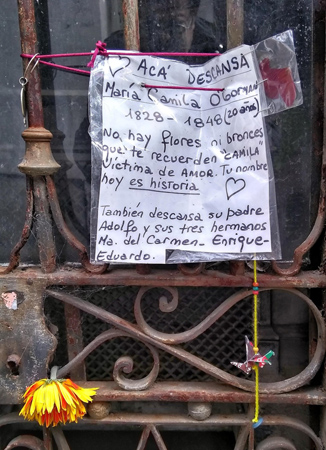 ACA' DESCANSA
María Camila O'GORMAN
1828 - 1848 (20 años)
No, hay flores ni bronces
que te recuerden "CAMILA"
Víctima de AMOR. Tu nombre
hoy es historia
También descansa su padre
Adolfo y sus tres hermanos
Ma. del Carmen - Enrique-
Eduardo.